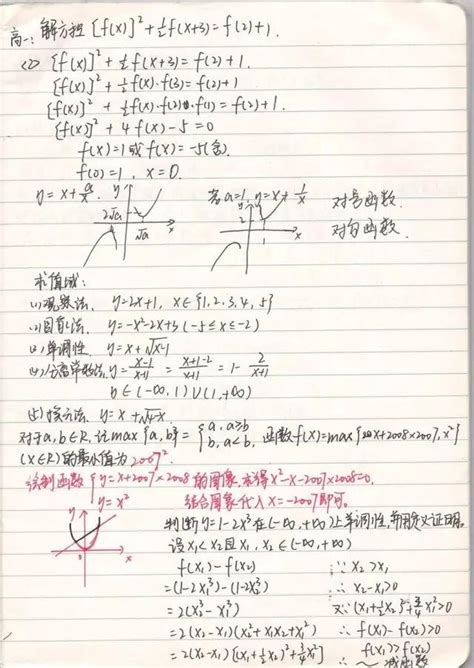 高一: 解方程 [f(x)]² + ½f(x+3) = f(2)+1.
<2> [f(x)]² + ½f(x+3) = f(2)+1.
[f(x)]² + ½f(x)·f(3) = f(2)+1
[f(x)]² + ½f(x)·f(2)·f(1) = f(2)+1.
[f(x)]² + 4f(x) - 5 = 0
f(x)=1 或 f(x)=-5(舍).
f(0)=1, x=0.
y = x + a/x. y
2√a
√a x
若a=1, y = x + 1/x
y
2
1 x
对号函数.
对勾函数.
求值域:
(1) 观察法. y=2x+1, x∈{1,2,3,4,5}
(2) 图象法. y=-x²-2x+3 (-5≤x≤-2)
(3) 单调性. y = x+√x-1
(4) 分离常数法. y = x-1/x+1 = x+1-2/x+1 = 1 - 2/x+1
y∈(-∞,1)∪(1,+∞)
(5) 换元法. y = x+√4-x.
对于a,b∈R, 记max{a,b} = {a, a≥b b, a<b. 函数f(x)=max{x+2008×2007, x²}
(x∈R)的最小值为 2007².
绘制函数 { y=x+2007×2008 y=x² 的图象, 求得x²-x-2007×2008=0,
结合图象代入x=-2007即可.
y
0 x
判断y=1-2x³在(-∞,+∞)上单调性,并用定义证明.
设x₁<x₂且x₁, x₂∈(-∞,+∞)
f(x₁)-f(x₂) ∵ x₂>x₁
=(1-2x₁³)-(1-2x₂³) ∴ x₂-x₁>0
=2(x₂³-x₁³) 又∵(x₁+½x₂)²+¾x₂²>0
=2(x₂-x₁)(x₂²+x₁x₂+x₁²) ∴ f(x₁)-f(x₂)>0
=2(x₂-x₁)[(x₁+½x₂)²+¾x₂²] f(x₁)>f(x₂)
减函数